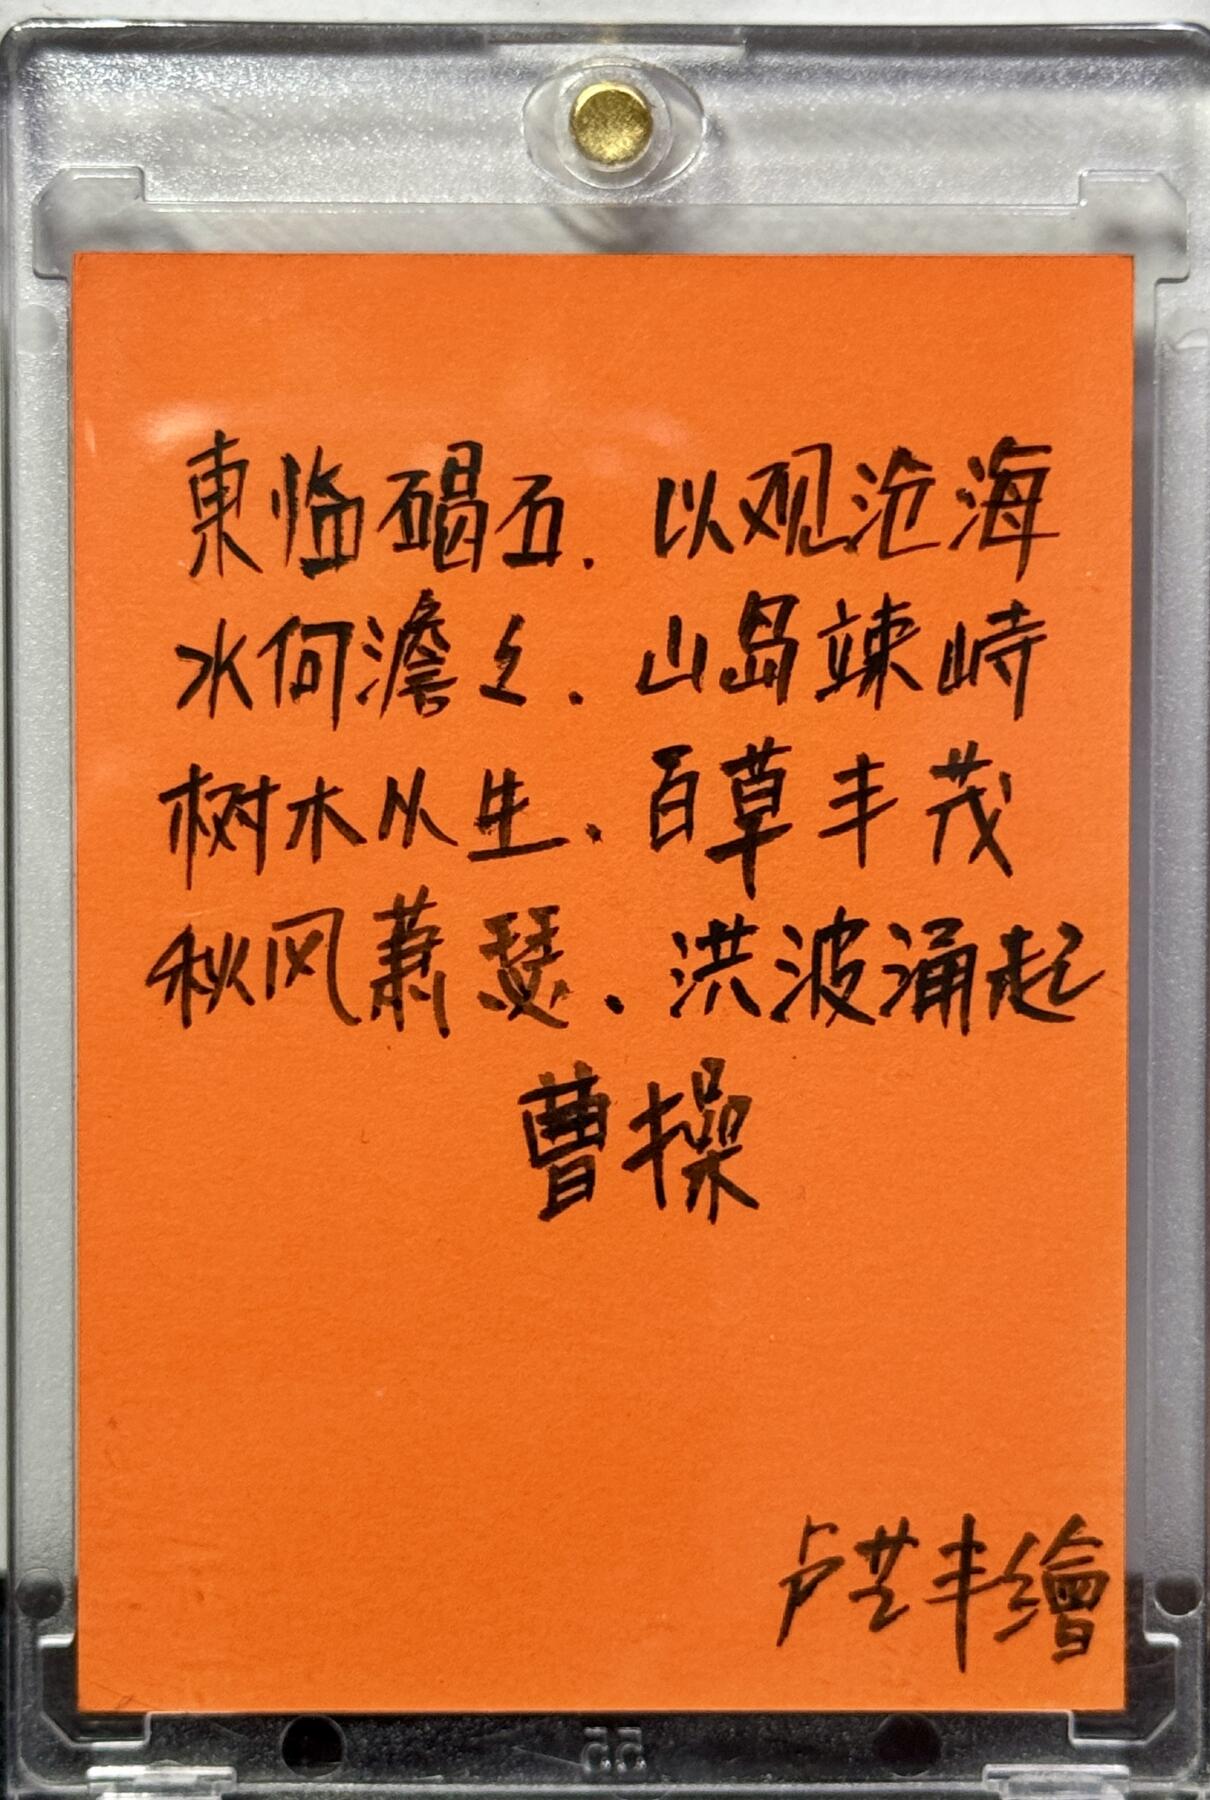 東临碣石.以观沧海
水何澹々.山岛竦峙
树木从生.百草丰茂
秋风萧瑟.洪波涌起
曹操
卢芸丰繪
55